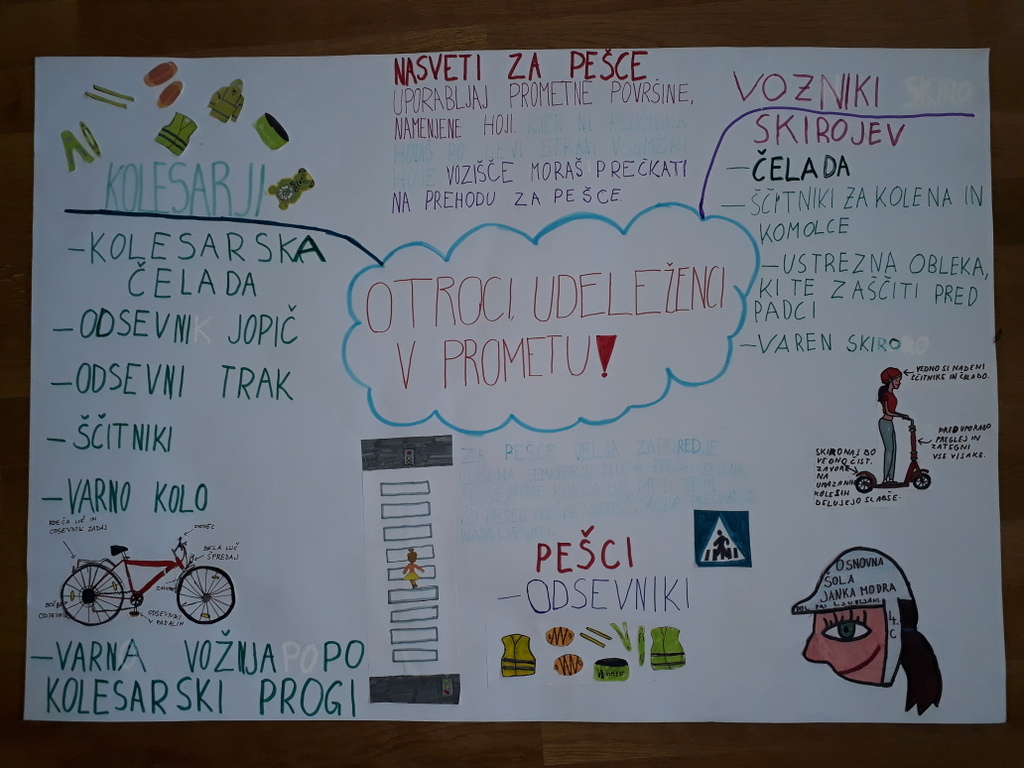 NASVETI ZA PEŠCE
UPORABLJAJ PROMETNE POVRŠINE,
NAMENJENE HOJI. KJER NI PLOČNIKA
HODIŠ PO LEVI STRANI V SMERI
HOJE. VOZIŠČE MORAŠ PREČKATI
NA PREHODU ZA PEŠCE.
KOLESARJI
-KOLESARSKA
ČELADA
-ODSEVNI JOPIČ
-ODSEVNI TRAK
-ŠČITNIKI
-VARNO KOLO
RDEČA LUČ IN
ODSEVNIK ZADAJ
ZVONEC
BELA LUČ
SPREDAJ
ODSEVNIKI
V PEDALIH
-VARNA VOŽNJA PO PO
KOLESARSKI PROGI
OTROCI, UDELEŽENCI
V PROMETU!
VOZNIKI SKIRO
SKIROJEV
-ČELADA
-ŠČITNIKI ZA KOLENA IN
KOMOLCE
-USTREZNA OBLEKA,
KI TE ZAŠČITI PRED
PADCI
-VAREN SKIRO
VEDNO SI NADENI
ŠČITNIKE IN ČELADO.
PRED UPORABO
PREGLEJ IN
ZATEGNI
VSE VIJAKE.
SKIRO NAJ BO
VEDNO ČIST.
ZAVORE
NA
UMAZANIH
KOLESIH
DELUJEJO SLABŠE.
ZA PEŠCE VELJA ZAPOREDJE
PEŠCI
-ODSEVNIKI
OSNOVNA
ŠOLA
JANKA MODRA
DOL PRI LJUBLJANI
4.
C